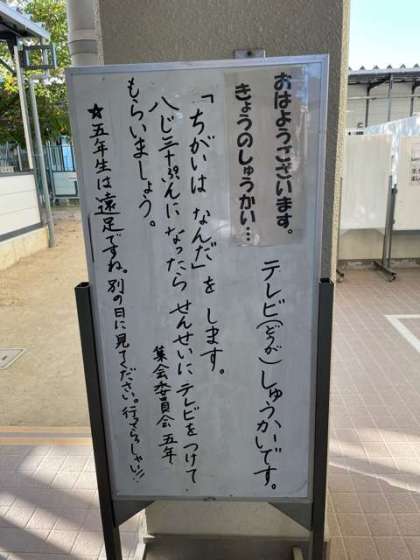 おはようございます。
きょうのしゅうかい…
テレビ(どうが)しゅうかいです。
「ちがいは なんだ」を します。
八じ三十ぷんに なったら せんせいに テレビを つけて
もらいましょう。
集会委員会 五年
☆五年生は遠足ですね。別の日に見てください。行ってらっしゃい!!